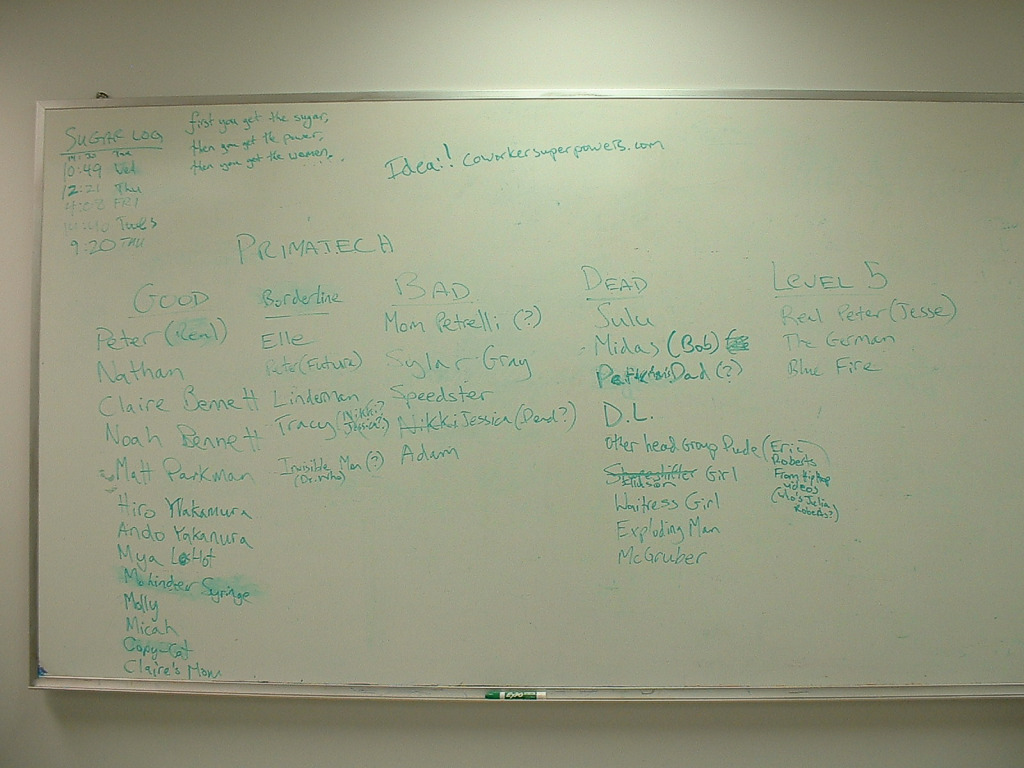 SUGAR LOG
14:30 Tue
10:49 Wed
12:21 Thu
4:08 FRI
14:40 Tues
9:20 THU
first you get the sugar,
then you get the power,
then you get the women....
Idea!! coworkersuperpowers.com
PRIMATECH
GOOD
Peter (Real)
Nathan
Claire Bennett
Noah Bennett
Matt Parkman
Hiro Yakamura
Ando Yakamura
Mya LosHot
Mohinder Syringe
Molly
Micah
Copy-Cat
Claire's Mom
Borderline
Elle
Peter (Future)
Linderman
Tracy (Nikki?
Jessica?)
Invisible Man (?)
(Dr. Who)
BAD
Mom Petrelli (?)
Sylar Gray
Speedster
Nikki Jessica (Dead?)
Adam
DEAD
Sulu
Midas (Bob)
Parkman's Dad (?)
D.L.
Other head Group Dude (Eric
Roberts
From Hip hop
videos
(who's Julia
Roberts?)
Shapeshifter Girl
Illusion
Waitress Girl
Exploding Man
McGruber
LEVEL 5
Real Peter (Jesse)
The German
Blue Fire
EXPO